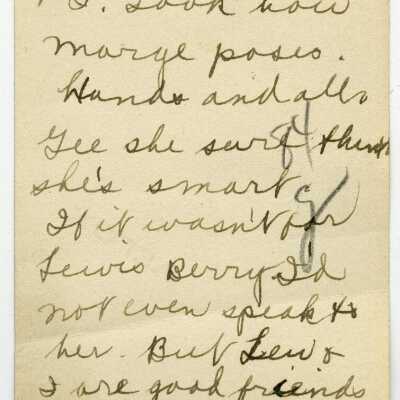 I. Look how
marge poses.
Hands and all.
Gee she sure think
she's smart.
If it wasn't for
Lewis Berry I'd
not even speak to
her. But Lew &
I are good friends